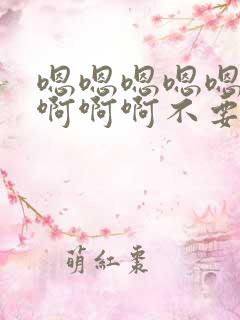 嗯嗯嗯嗯嗯
啊啊啊不要
萌紅棗